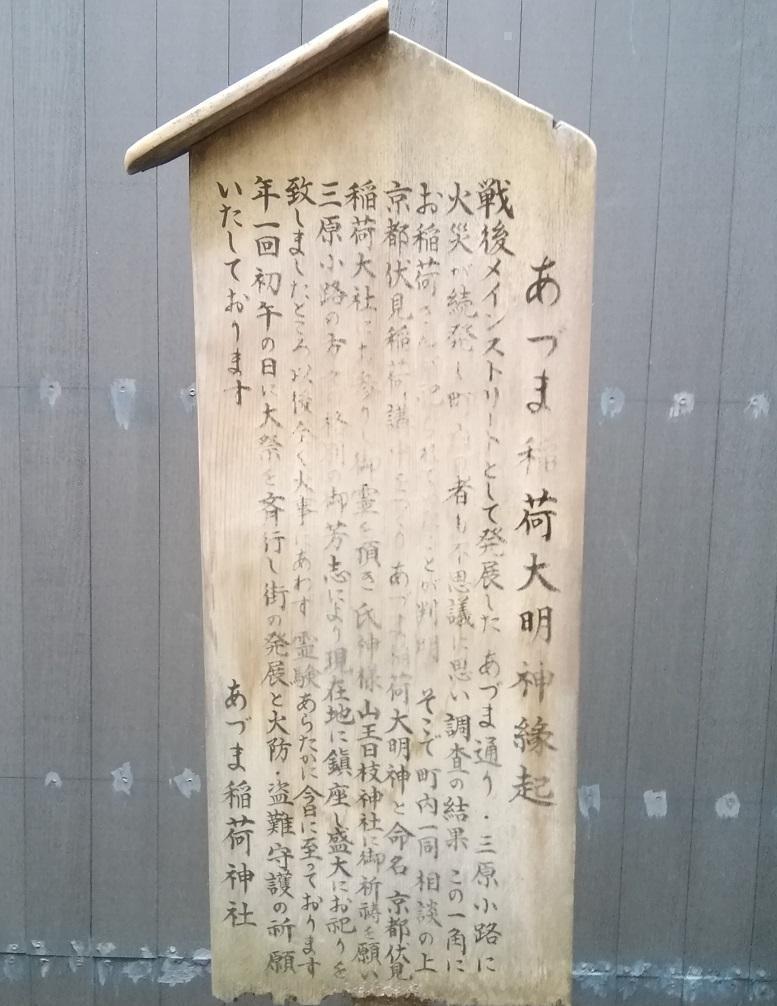 あづま稲荷大明神縁起
戦後メインストリートとして発展した あづま通り・三原小路に
火災が続発し町内の者も不思議に思い調査の結果 この一角に
お稲荷さんが祀られていたことが判明 そこで町内一同相談の上
京都伏見稲荷講中をつくり あづま稲荷大明神と命名 京都伏見
稲荷大社にお参りし御霊を頂き氏神様山王日枝神社に御祈祷を願い
三原小路の方々 格別の御芳志により現在地に鎮座し盛大にお祀りを
致しましたところ 以後全く火事にあわず 霊験あらたかに今日に至っております
年一回初午の日に大祭を斉行し街の発展と火防・盗難守護の祈願
いたしております
あづま稲荷神社